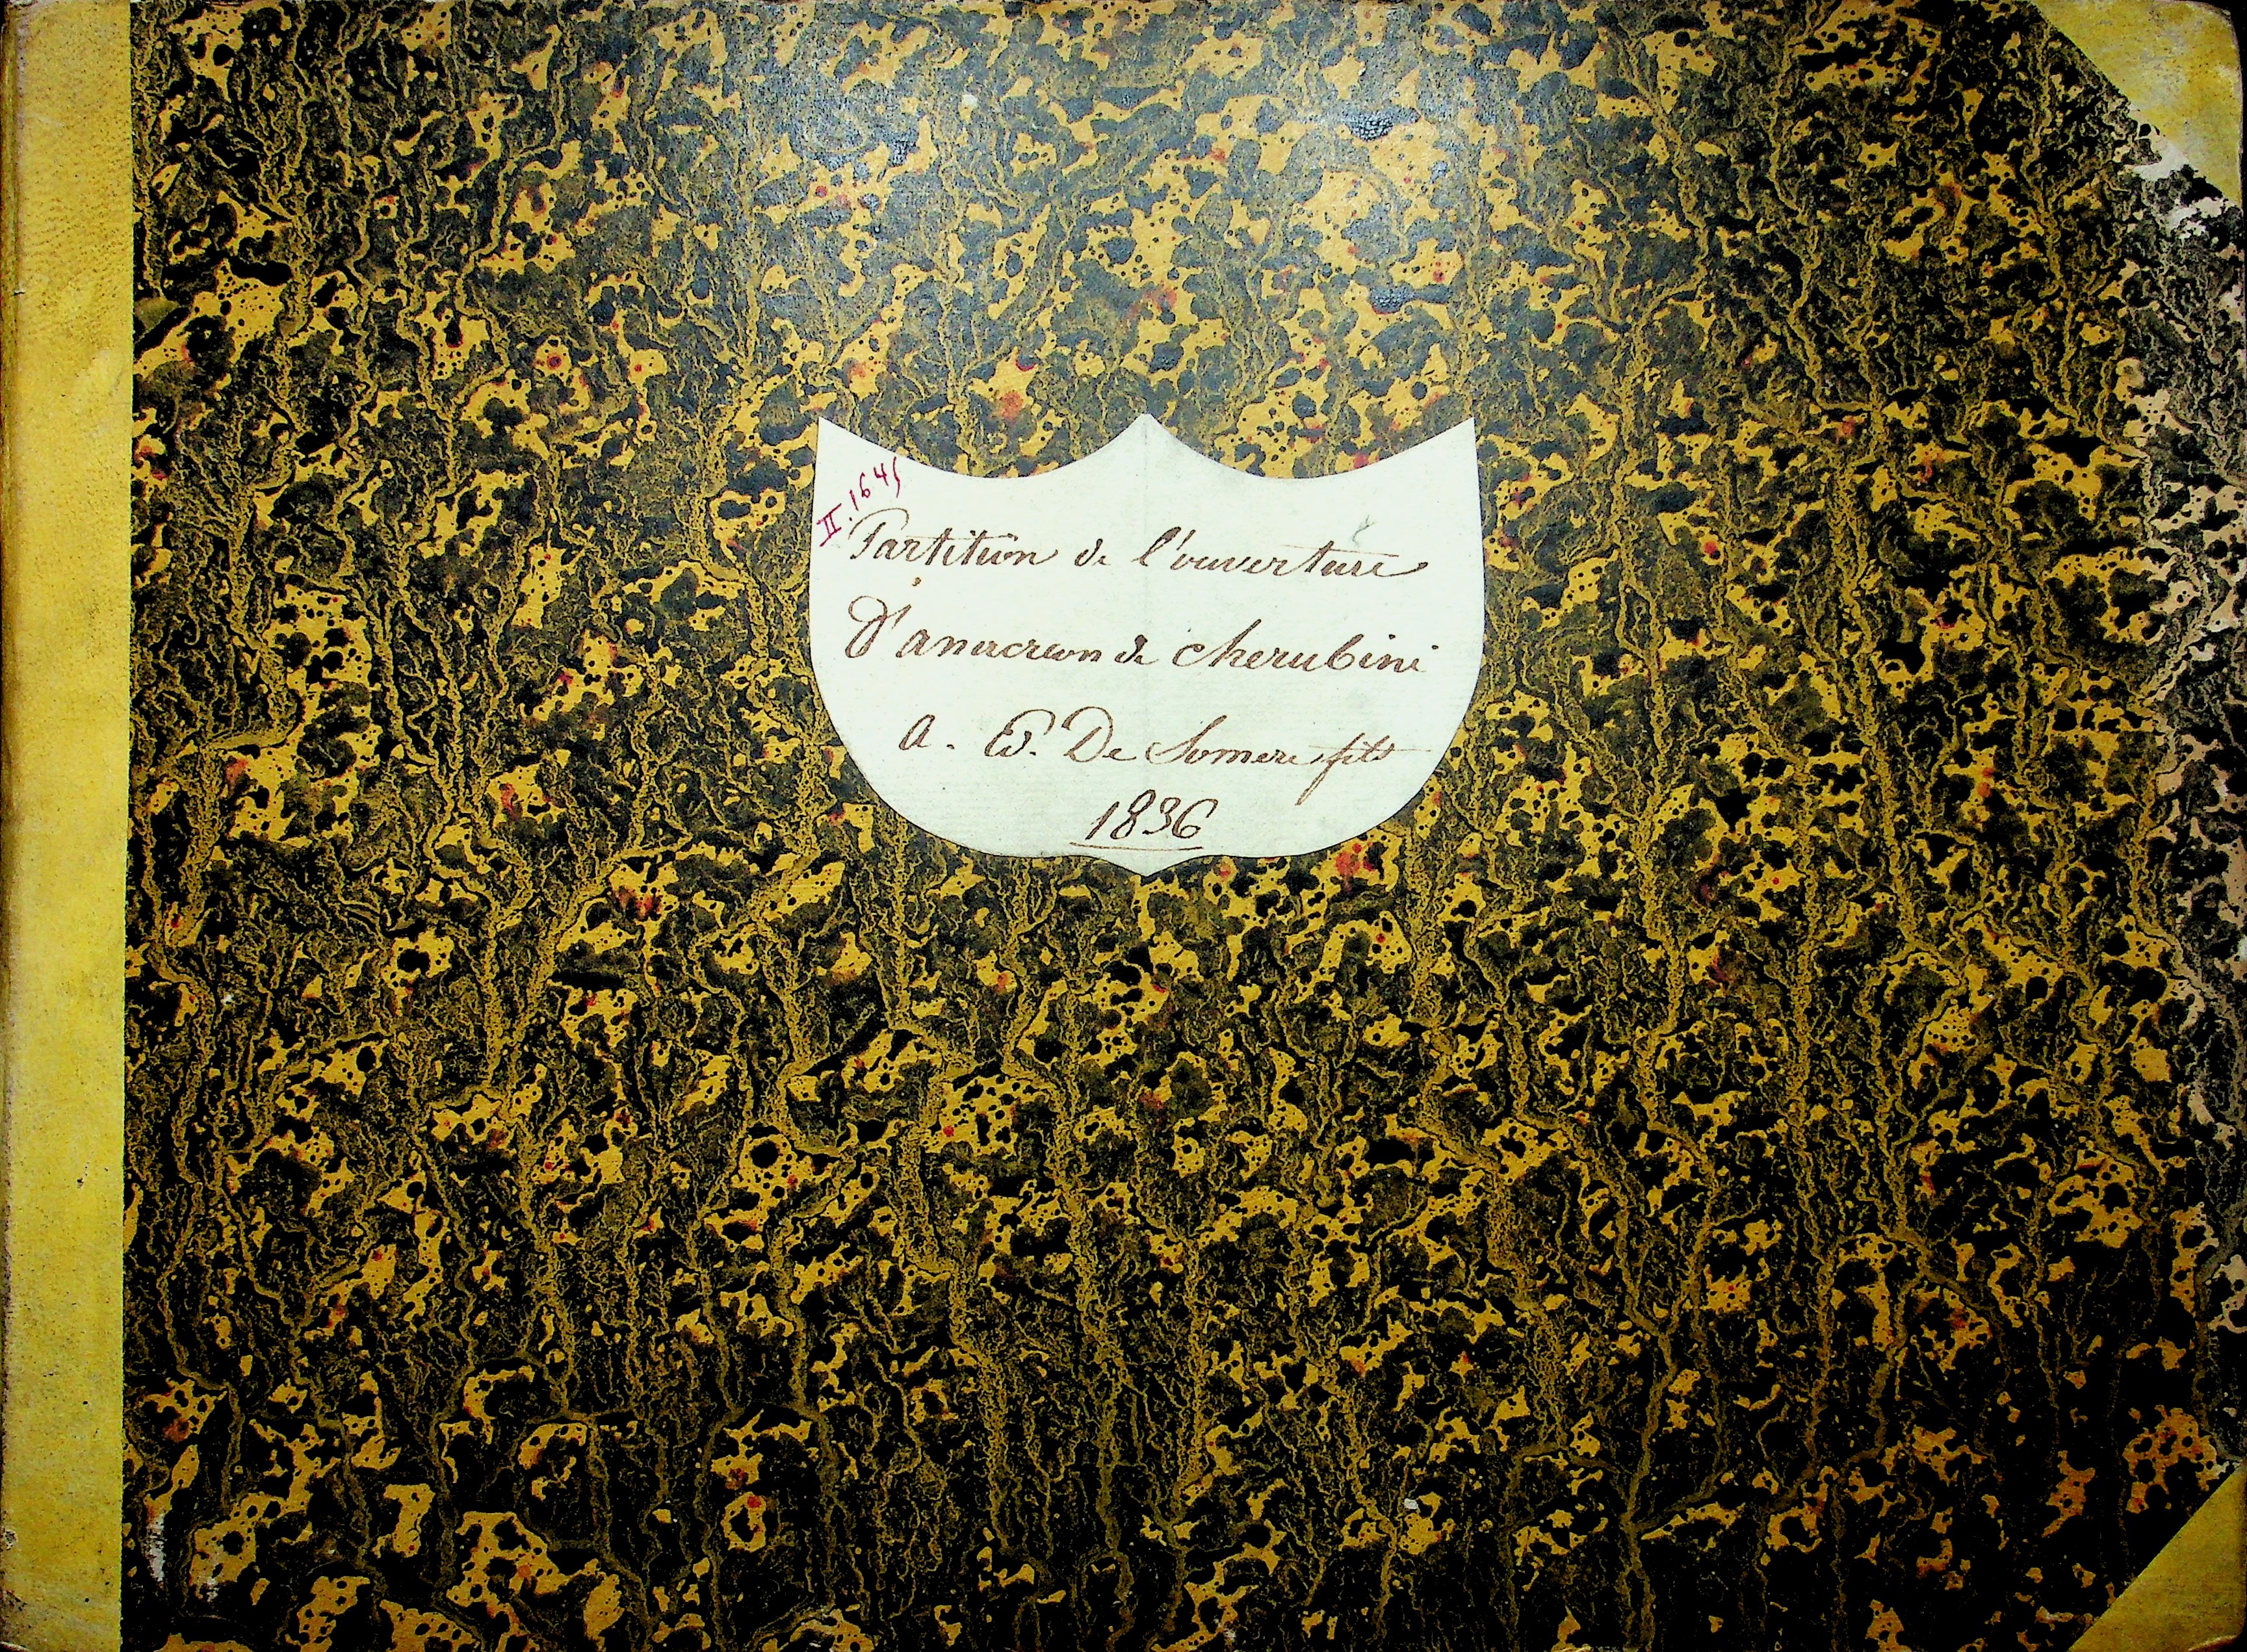 II. 1645
Partition de l'ouverture
D'anacreon de cherubini
a. E. De Somere fils
1836